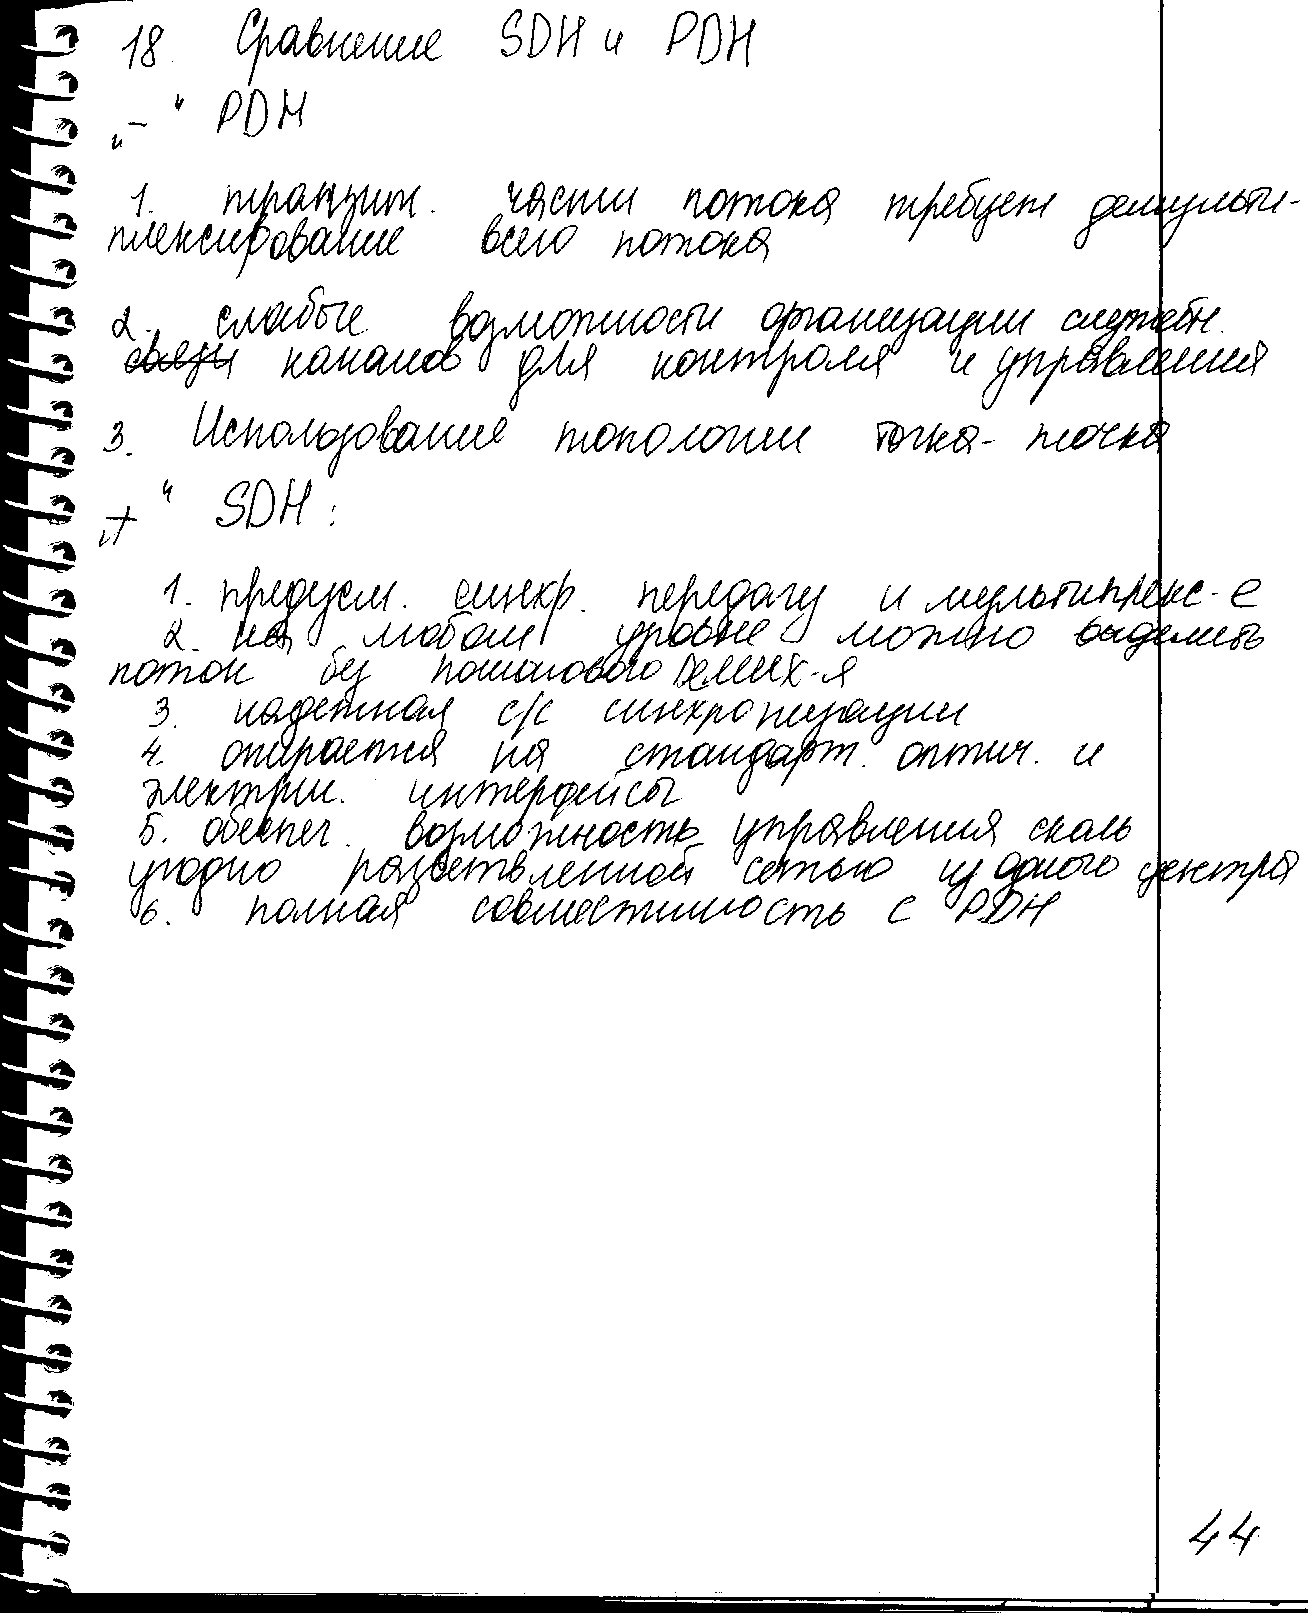 18. Сравнение SDH и PDH
„–“ PDH
1. транзит. части потока требует демульти-
плексирование всего потока
2. слабые возможности организации служебн.
связи каналов для контроля и управления
3. Использование топологии точка-точка
„+“ SDH:
1. предусм. синхр. передачу и мультиплекс-е
2. на любом уровне можно выделить
поток без пошагового
3. надежная с/с синхронизации
4. опирается на стандарт. оптич. и
электрич. интерфейсы
5. обеспеч. возможность управления сколь
угодно разветвленной сетью из одного центра
6. полная совместимость с PDH
44